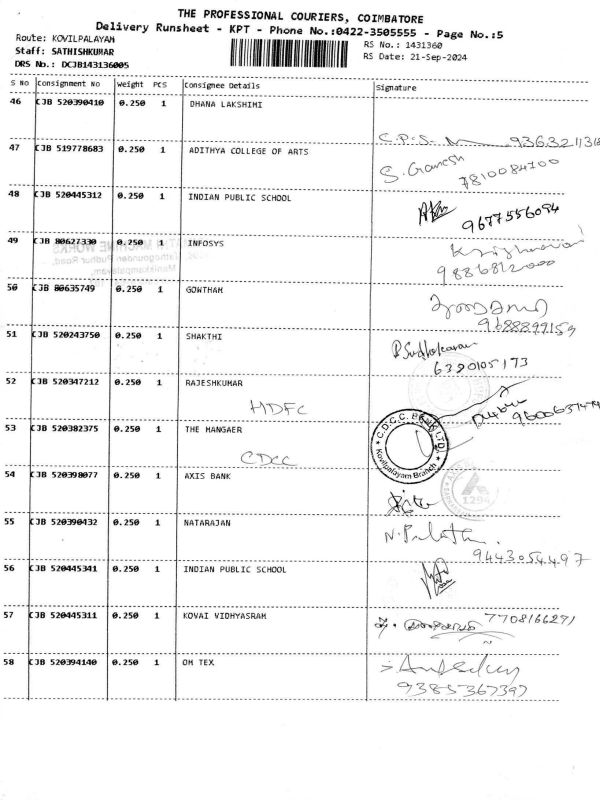 THE PROFESSIONAL COURIERS, COIMBATORE
Delivery Runsheet - KPT - Phone No.:0422-3505555 - Page No.:5
Route: KOVILPALAYAM
Staff: SATHISHKUMAR
DRS No.: DCJB143136005
RS No.: 1431360
RS Date: 21-Sep-2024
S No Consignment No Weight PCS Consignee Details Signature
46 CJB 520390410 0.250 1 DHANA LAKSHIMI
C.P.S.
47 CJB 519778683 0.250 1 ADITHYA COLLEGE OF ARTS
S. Ganesh
7810084700
48 CJB 520445312 0.250 1 INDIAN PUBLIC SCHOOL
9677556094
49 CJB 80627330 0.250 1 INFOSYS
9886812000
50 CJB 80635749 0.250 1 GOWTHAM
9688899159
51 CJB 520243750 0.250 1 SHAKTHI
P. Sudhakaran
6380105173
52 CJB 520347212 0.250 1 RAJESHKUMAR
HDFC
53 CJB 520382375 0.250 1 THE MANGAER
CDCC
C.D.C.C. BANK LTD.
Kovilpalayam Branch
54 CJB 520398077 0.250 1 AXIS BANK
1294
55 CJB 520390432 0.250 1 NATARAJAN
9443054497
56 CJB 520445341 0.250 1 INDIAN PUBLIC SCHOOL
57 CJB 520445311 0.250 1 KOVAI VIDHYASRAM
7708166291
58 CJB 520394140 0.250 1 OM TEX
9385367397